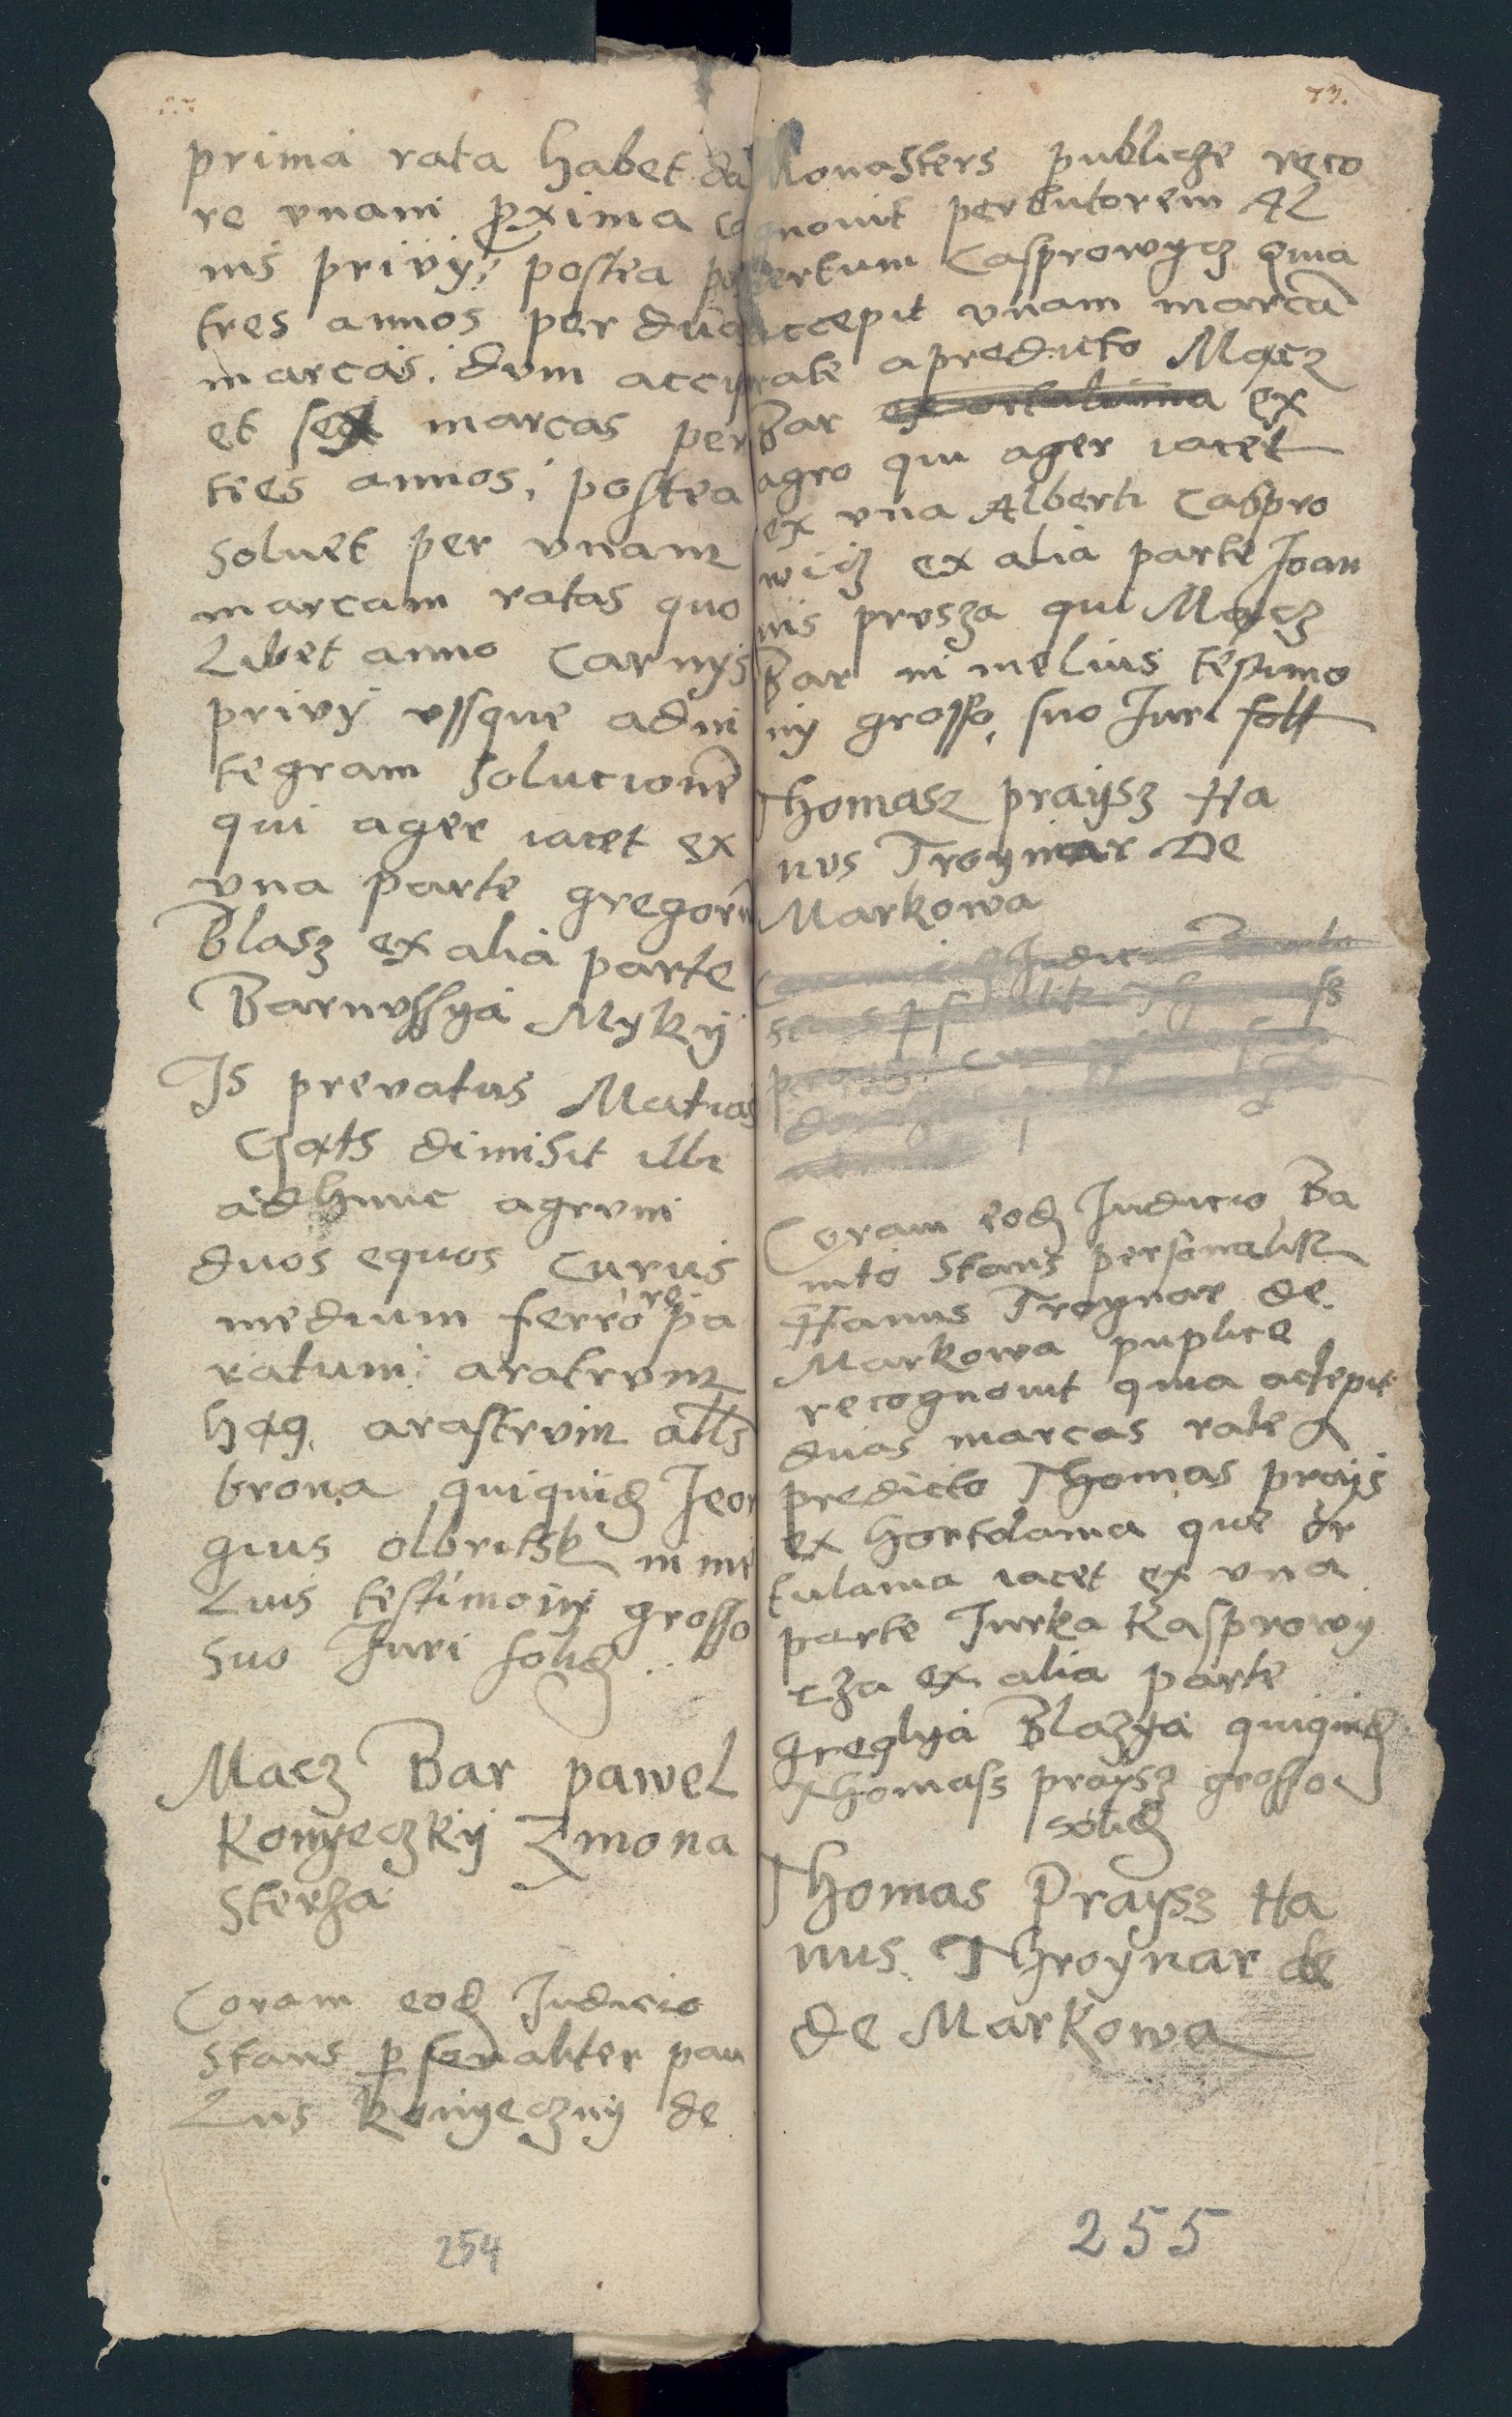 prima rata habet da
re vnam p̱xima ca
nis privÿ: postea per
tres annos per duas
marcas. dum accip
et sex marcas per
tres annos; postea
soluet per vnam
marcam ratas quo
Libet anno Carnÿs
privÿ vssque ad in
tegram solucionē
qui ager iacet ex
vna parte gregorii
Blasz ex alia parte
Barnussya Mykÿ
Is prevatus Matias
dimisit illi
ad hunc agrum
duos equos Currus
medium ferro repa
ratum: aratrum
arastrum als
brona quiquidē Jeor
gius olbritsk in me
Lius testimoniÿ grosso
suo Juri solid
Macz Bar pawel
Konyeczkÿ Zmona
sterza
Coram eod Judicio
stans p̱sonaliter pau
Lus konyeczny de
254
73.
Monasters publicze reco
gnouit per tutorem Al
bertum Casprowycz quia
accepit vnam marcā
rate a predicto Macz
Bar ex
agro qui ager iacet
ex vna Alberti Caspro
wicz ex alia parte Joan
nis prusza qui Macz
Bar in melius testimo
nÿ grosso, suo Juri soll
Thomasz praÿsz Ha
nus Troynar De
Markowa
Judicio
Coram eod Judicio Ba
nito stans personalit
Hanus Troynar de
Markowa puplice
recognouit quia accepit
duas marcas rate a
predicto Thomas praÿs
ex hortolania que or
tulania iacet ex vna
parte Jurka Kasprowy
cza ex alia parte
greglya Blazya quiquid
Thomass praysz grosso
solid
Thomas Praysz Ha
nus Throynar de
de Markowa
255